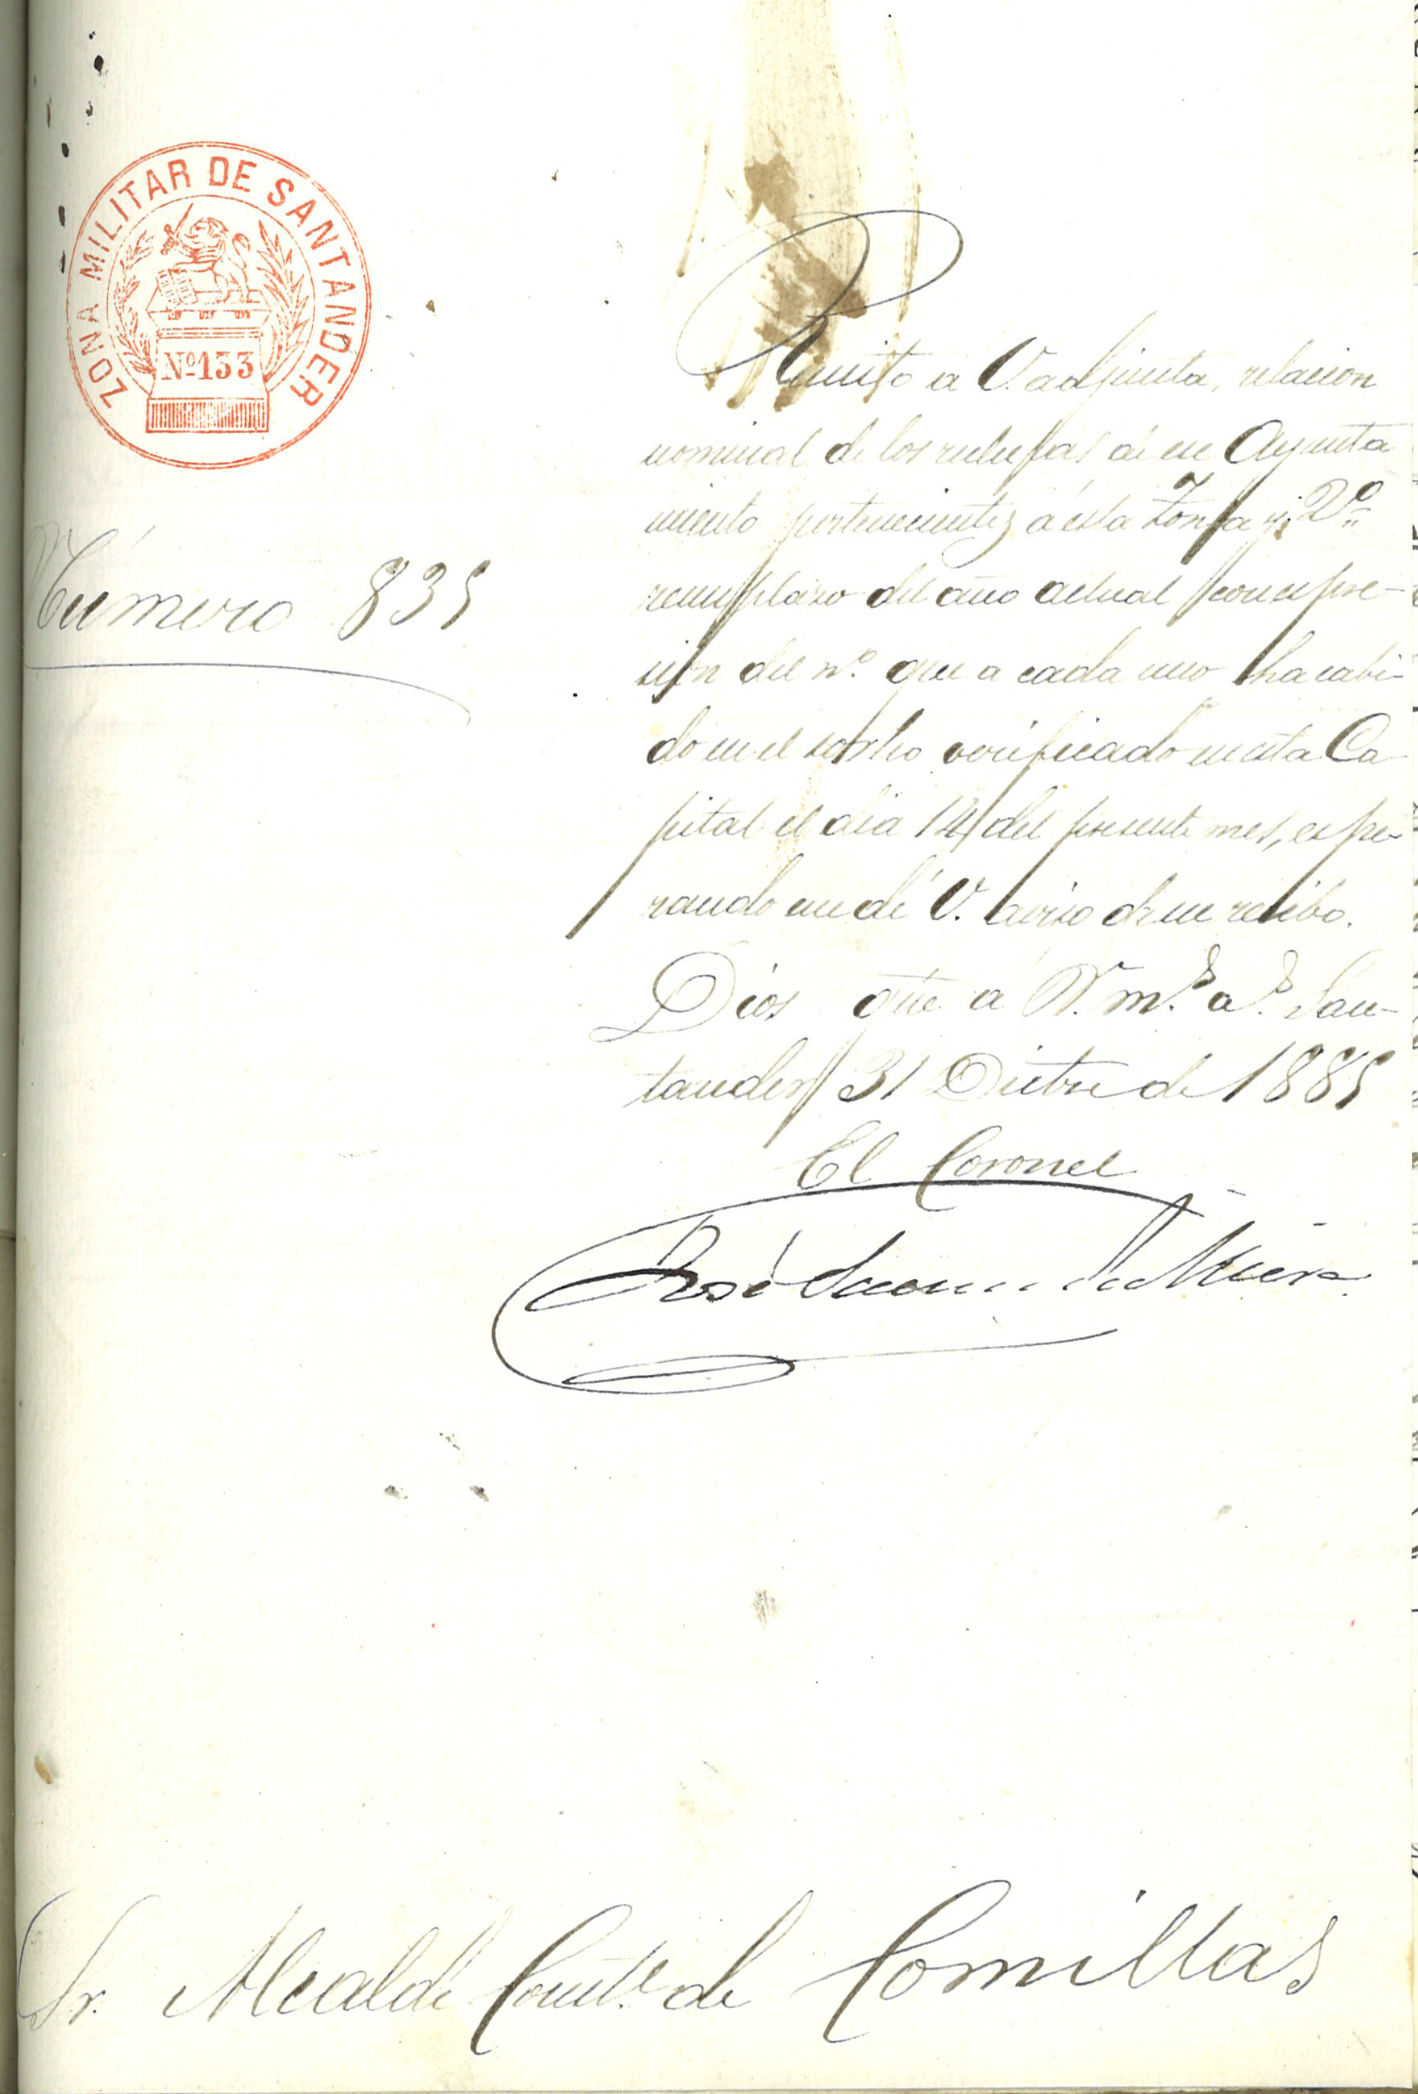 ZONA MILITAR DE SANTANDER
Nº 133
Número 835
Remito a V. adjunta, relacion
nominal de los reclutas de ese Ayunta
miento pertenecientes á ésta Zona y 2º
reemplazo del año actual con espre-
sion del nº. que a cada uno ha cabi-
do en el sorteo verificado en esta Ca
pital el dia 14 del presente mes, espe-
rando me dé V. aviso de su recibo.
Dios gue á V. m.s a.s San-
tander 31 Dicbre de 1885
El Coronel
José de Miera
Sr. Alcalde Constl. de Comillas